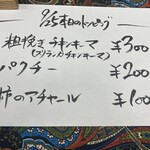 9/25本日のトッピング
粗挽きチキンキーマ ¥300
(スリランカチキンキーマ)
パクチー ¥200
柿のアチャール ¥100